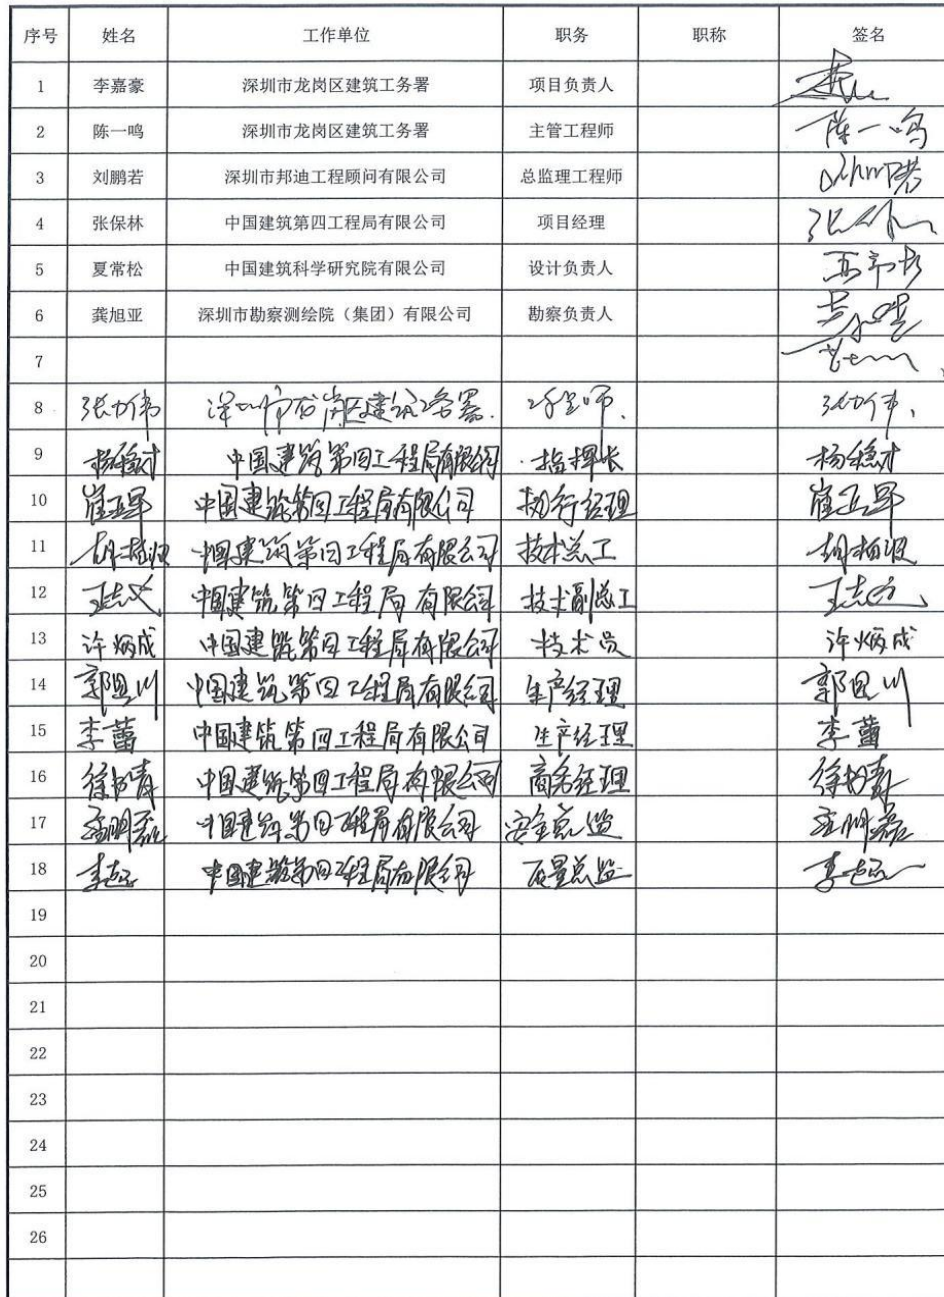 序号 姓名 工作单位 职务 职称 签名
1 李嘉豪 深圳市龙岗区建筑工务署 项目负责人
2 陈一鸣 深圳市龙岗区建筑工务署 主管工程师 陈一鸣
3 刘鹏若 深圳市邦迪工程顾问有限公司 总监理工程师
4 张保林 中国建筑第四工程局有限公司 项目经理
5 夏常松 中国建筑科学研究院有限公司 设计负责人
6 龚旭亚 深圳市勘察测绘院（集团）有限公司 勘察负责人
7
8 张力伟 深圳市龙岗区建筑工务署. 工程师. 张力伟.
9 杨稳才 中国建筑第四工程局有限公司 指挥长 杨稳才
10 中国建筑第四工程局有限公司 执行经理
11 胡柏浪 中国建筑第四工程局有限公司 技术总工
12 中国建筑第四工程局有限公司 技术副总工
13 许炳成 中国建筑第四工程局有限公司 技术员 许炳成
14 郭恩川 中国建筑第四工程局有限公司 生产经理 郭恩川
15 李蕾 中国建筑第四工程局有限公司 生产经理 李蕾
16 中国建筑第四工程局有限公司 商务经理
17 孟明磊 中国建筑第四工程局有限公司 安全总监 孟明磊
18 中国建筑第四工程局有限公司 质量总监
19
20
21
22
23
24
25
26